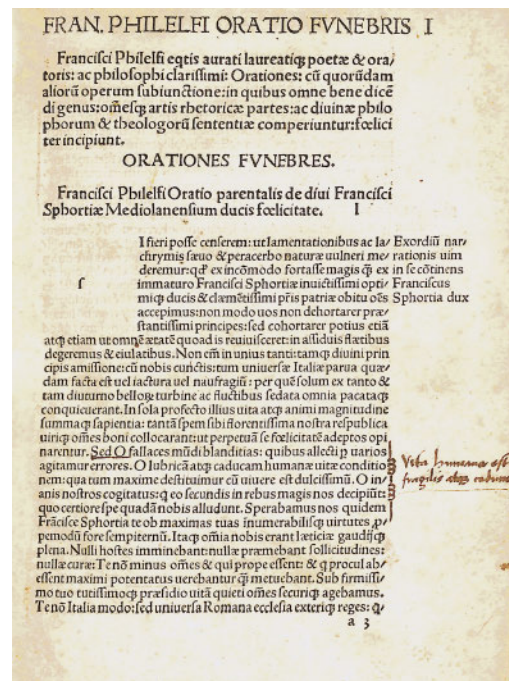 FRAN. PHILELFI ORATIO FVNEBRIS I
Francisci Philelfi eqtis aurati laureatiq; poetæ & ora/
toris: ac philosophi clarissimi: Orationes: cũ quorũdam
aliorũ operum subiunctione: in quibus omne bene dicẽ
di genus: oẽsq; artis rhetoricæ partes: ac diuinæ philo
phorum & theologorũ sententiæ comperiuntur: fœlici
ter incipiunt.
ORATIONES FVNEBRES.
Francisci Philelfi Oratio parentalis de diui Francisci
Sphortiæ Mediolanensium ducis fœlicitate. I
ſ
I fieri posse censerem: ut lamentationibus ac la/
chrymis sæuo & peracerbo naturæ uulneri me/
deremur: qđ ex incõmodo fortasse magis q̃ ex
immaturo Francisci Sphortiæ inuictissimi opti/
miq; ducis & clæmẽtissimi pr̃is patriæ obitu oẽs
accepimus: non modo uos non dehortarer præ/
stantissimi principes: sed cohortarer potius etiã
Exordiũ nar/
rationis uim
in se cõtinens
Franciscus
Sphortia dux
atq; etiam ut omnẽ ætatẽ quoad is reuiuisceret: in assiduis flætibus
degeremus & eiulatibus. Non em̃ in unius tanti: tamq; diuini prin
cipis amissione: cũ nobis cunctis: tum uniuersæ Italiæ parua quæ/
dam facta est uel iactura uel naufragiũ: per quẽ solum ex tanto &
tam diuturno belloꝝ turbine ac fluctibus sedata omnia pacataq;
conquieuerant. In sola profecto illius uita atq; animi magnitudine
summaq; sapientia: tantã spem sibi florentissima nostra respublica
uiriq; omẽs boni collocarant: ut perpetuã se fœlicitatẽ adeptos opi
narentur. Sed O fallaces mũdi blanditias: quibus allecti ꝑ uarios
agitamur errores. O lubricã atq; caducam humanæ uitæ conditio
nem: qua tum maxime destituimur cũ uiuere est dulcissimũ. O in/
anis nostros cogitatus: q̃ eo secundis in rebus magis nos decipiũt:
quo certiore spe quadã nobis alludunt. Sperabamus nos quidem
Frãcisce Sphortia te ob maximas tuas inumerabilisq; uirtutes ꝓ/
pemodũ fore sempiternũ. Itaq; omia nobis erant læticiæ gaudijq;
plena. Nulli hostes imminebant: nullæ præmebant sollicitudines:
nullæ curæ: Te nõ minus omẽs & qui prope essent: & q procul ab/
essent maximi potentatus uerebantur q̃ metuebant. Sub firmissi/
mo tuo tutissimoq; præsidio uitã quieti omẽs securiq; agebamus.
Te nõ Italia modo: sed uniuersa Romana ecclesia exteriq; reges: q̃/
Vita humana est
fragilis atq;
a 3